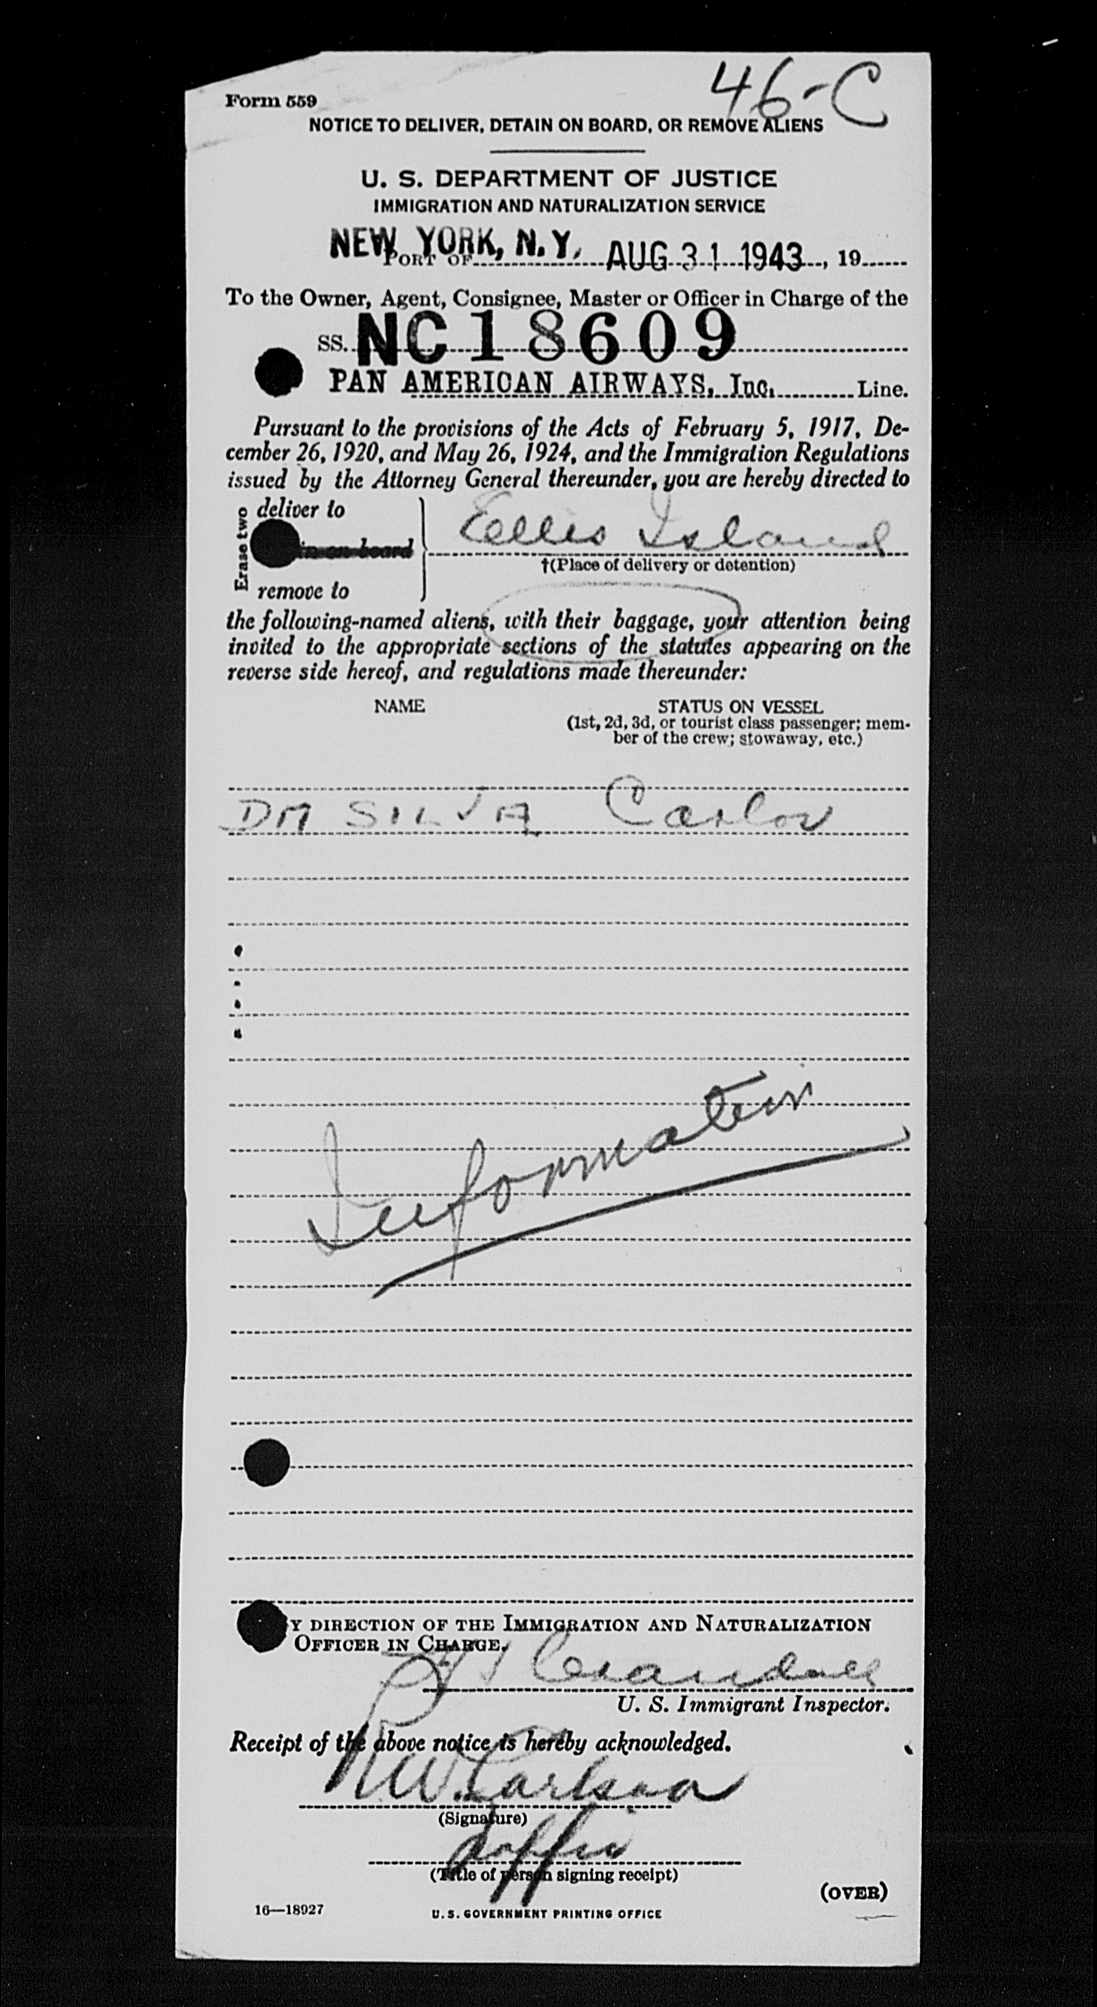 46-C
Form 559
NOTICE TO DELIVER, DETAIN ON BOARD, OR REMOVE ALIENS
U. S. DEPARTMENT OF JUSTICE
IMMIGRATION AND NATURALIZATION SERVICE
NEW YORK, N.Y. AUG 31 1943, 19
PORT OF
To the Owner, Agent, Consignee, Master or Officer in Charge of the
SS. NC18609
PAN AMERICAN AIRWAYS, Inc. Line.
Pursuant to the provisions of the Acts of February 5, 1917, De-
cember 26, 1920, and May 26, 1924, and the Immigration Regulations
issued by the Attorney General thereunder, you are hereby directed to
Erase two
deliver to
in on board
remove to
Ellis Island
†(Place of delivery or detention)
the following-named aliens, with their baggage, your attention being
invited to the appropriate sections of the statutes appearing on the
reverse side hereof, and regulations made thereunder:
NAME STATUS ON VESSEL
(1st, 2d, 3d, or tourist class passenger; mem-
ber of the crew; stowaway, etc.)
DA SILVA Carlos
Information
Y DIRECTION OF THE IMMIGRATION AND NATURALIZATION
OFFICER IN CHARGE.
Crandall
U. S. Immigrant Inspector.
Receipt of the above notice is hereby acknowledged.
R.W. Carlson
(Signature)
(Title of person signing receipt)
(OVER)
16—18927
U. S. GOVERNMENT PRINTING OFFICE